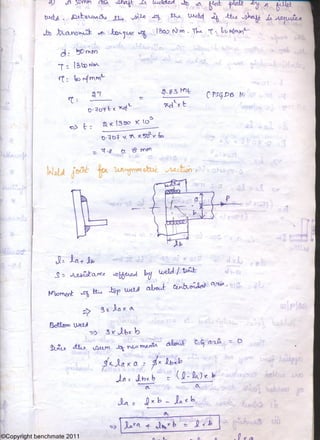 2) A 50mm dia shaft is welded to a flat plate by a fillet
weld. Determine the size of the weld if the shaft is required
to transmit a torque of 1300 Nm. The τ, 60 N/mm²
d: 50mm
T: 1300 Nm
τ: 60 N/mm²
τ: 2T / 0.707 t × πd² = 2.83 Mt / πd² × t (PDGDB
⇒ t: 2 × 1300 × 10³ / 0.707 × π × 50² × 60
Weld joint for unsymmetric section:
P
a
b
lb
l: la + lb
S: resistance offered by weld / unit
Moment of the top weld about centroidal axis
⇒ S × la × a
Bottom weld
⇒ S × lb × b
Since the sum of moments about C.G axis = 0
S × la × a = S × lb × b
la = lb × b / a = (l - la) × b / a
la = l × b - la × b / a
⇒ la × a + la × b = l × b
©Copyright benchmate 2011